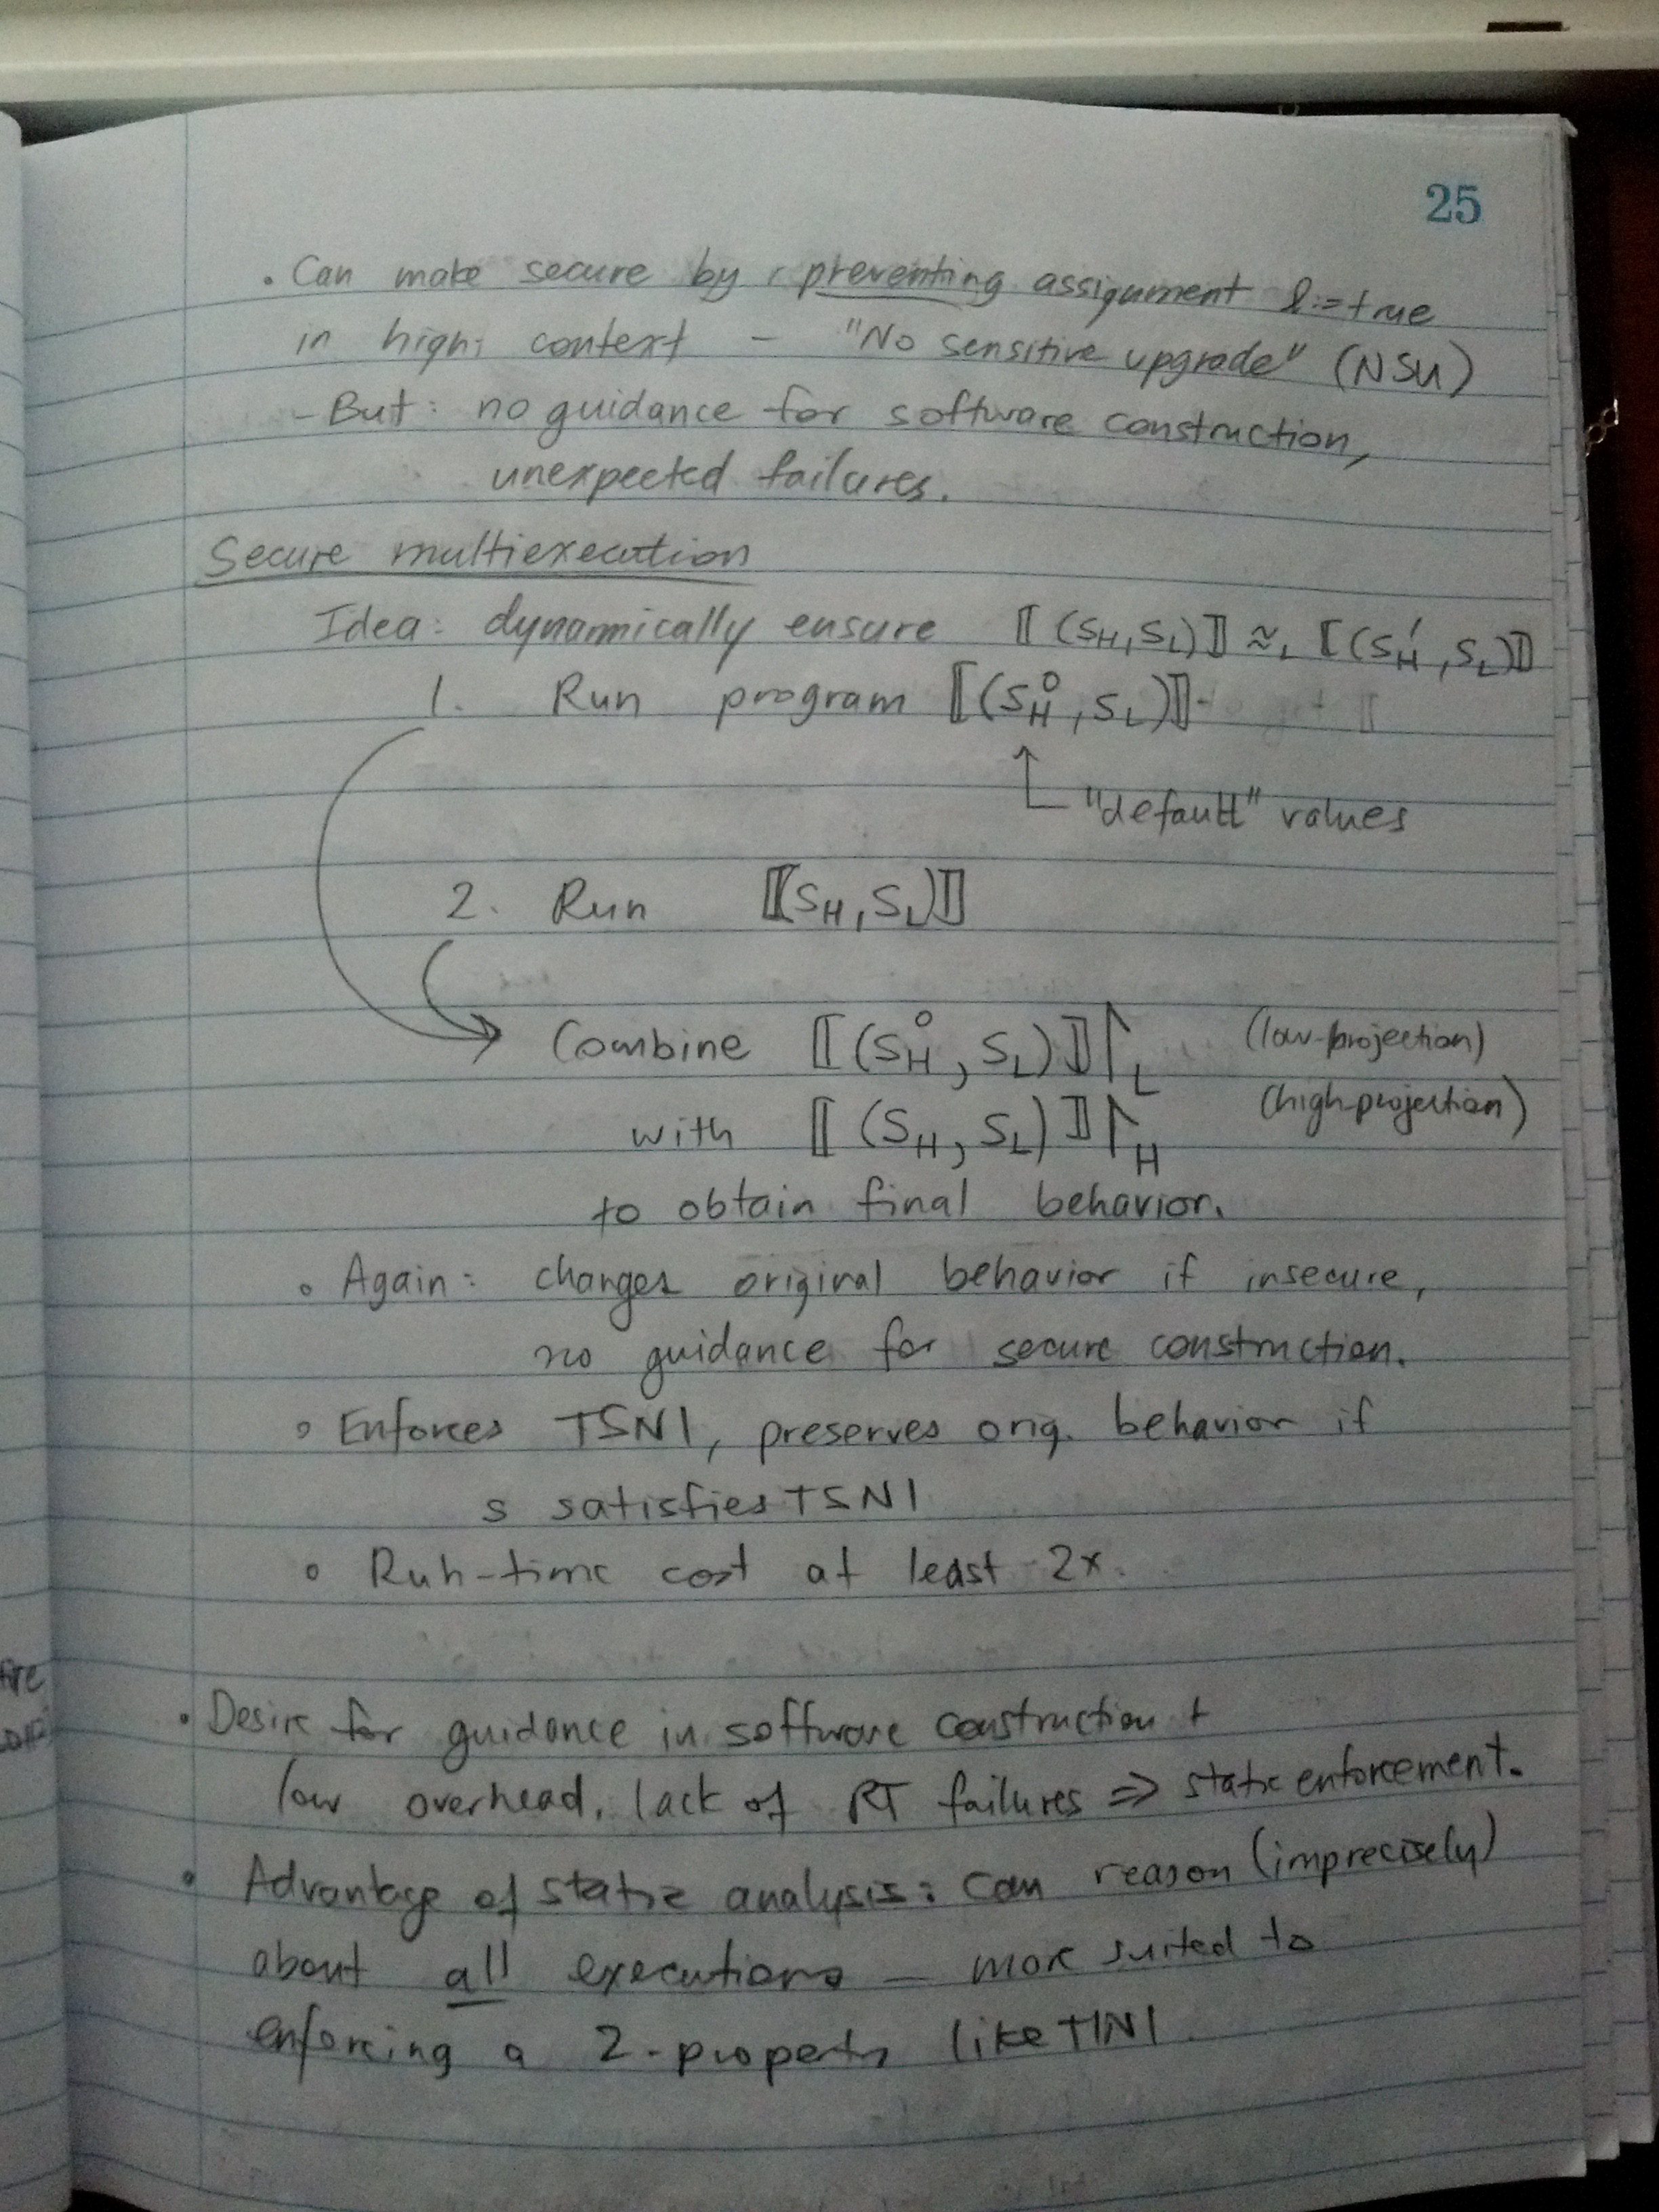 25
• Can make secure by preventing assignment l:=true
in high context – "No sensitive upgrade" (NSU)
– But: no guidance for software construction,
unexpected failures.
Secure multiexecution
Idea: dynamically ensure ⟦(S_H, S_L)⟧ ≈_L ⟦(S_H', S_L)⟧
1. Run program ⟦(S_H^0, S_L)⟧
"default" values
2. Run ⟦S_H, S_L)⟧
Combine ⟦(S_H^0, S_L)⟧↾_L (low-projection)
with ⟦(S_H, S_L)⟧↾_H (high-projection)
to obtain final behavior.
• Again: changes original behavior if insecure,
no guidance for secure construction.
• Enforces TSNI, preserves orig. behavior if
s satisfies TSNI
• Run-time cost at least 2x.
• Desire for guidance in software construction +
low overhead, lack of RT failures ⇒ static enforcement.
• Advantage of static analysis: can reason (imprecisely)
about all executions – more suited to
enforcing a 2-property like TINI